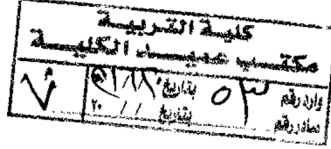 كلية التربية
مكتب عميد الكلية
وارد رقم ٥٣ بتاريخ
صادر رقم بتاريخ / / ٢٠